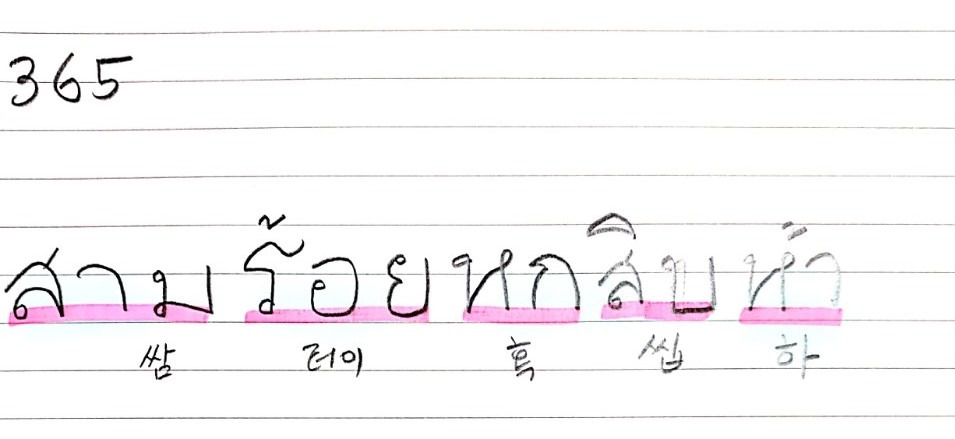 365
สามร้อยหกสิบห้า
쌈 러이 혹 씹 하